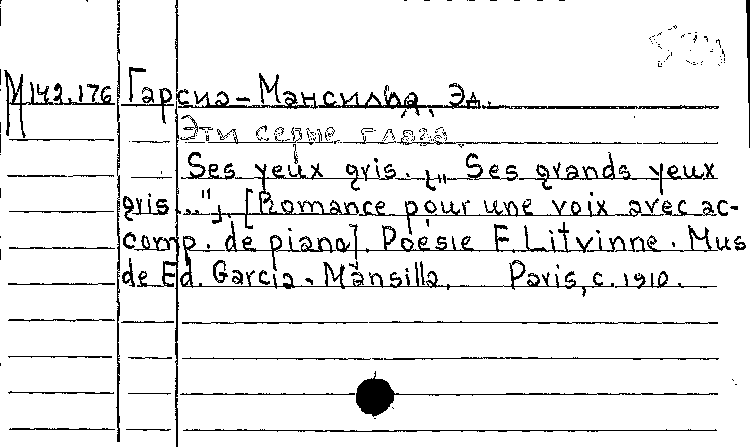 М142.176 Гарсиа-Мансилья, Эд.
Эти серые глаза.
Ses yeux gris. ["Ses grands yeux
gris..."]. [Romance pour une voix avec ac-
comp. de piano]. Poésie F. Litvinne. Mus
de Ed. Garcia-Mansilla. Paris, c. 1910.